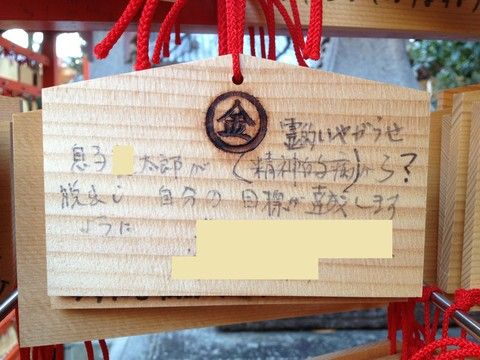 金
霊的いやがらせ
息子 太郎が(精神的病)から?
脱出し 自分の目標が達成します
ように